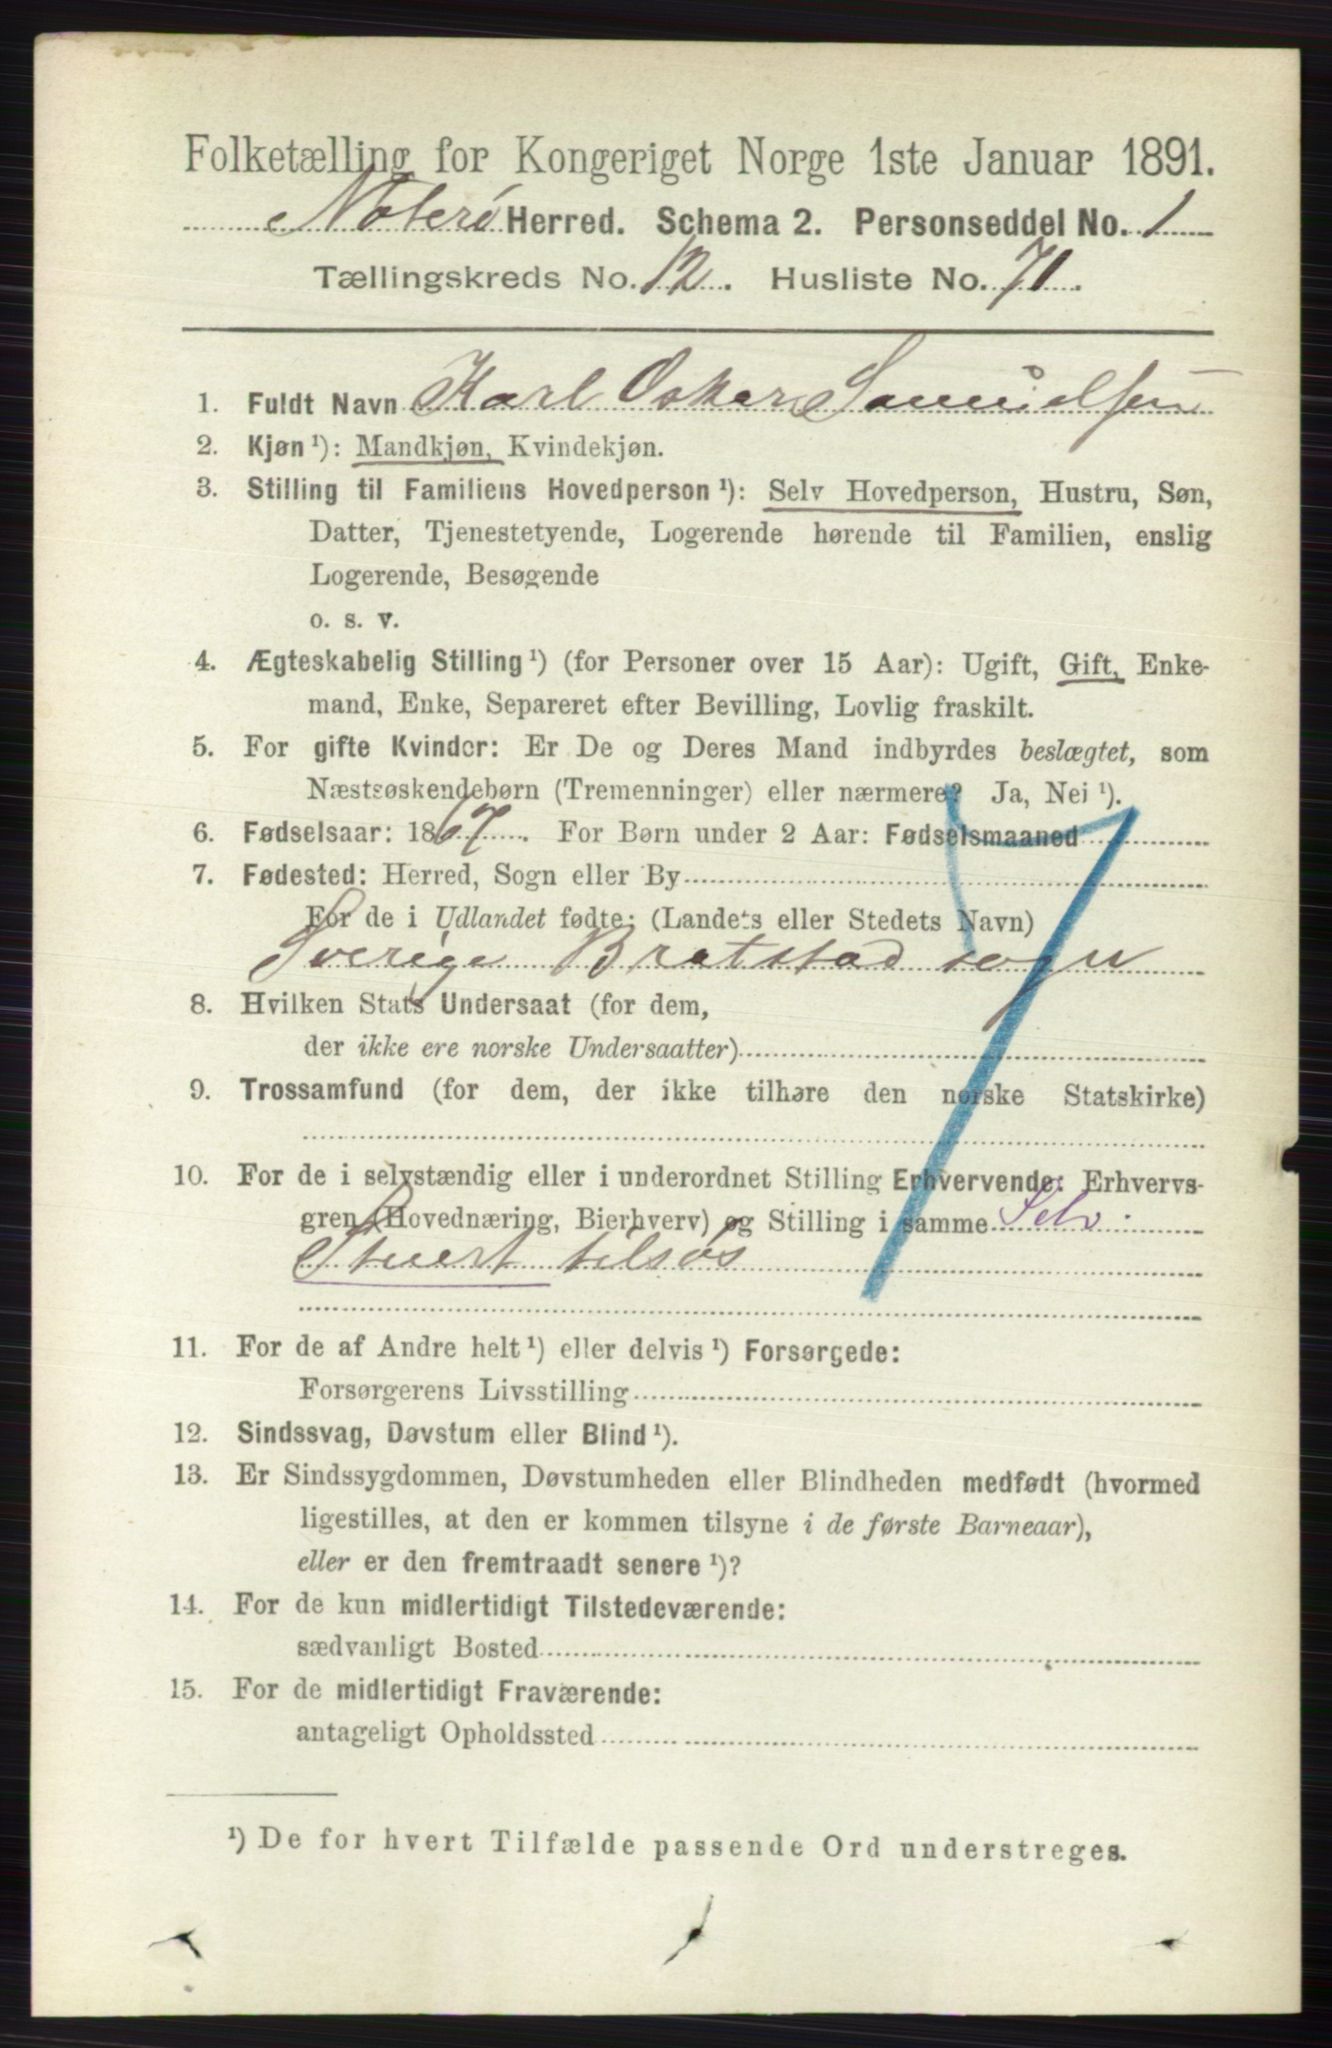 Folketælling for Kongeriget Norge 1ste Januar 1891.
Nøterø Herred. Schema 2. Personseddel No. 1
Tællingskreds No. 12. Husliste No. 71.
1. Fuldt Navn Karl Oskar Samuelsen
2. Kjøn ¹): Mandkjøn, Kvindekjøn.
3. Stilling til Familiens Hovedperson ¹): Selv Hovedperson, Hustru, Søn,
Datter, Tjenestetyende, Logerende hørende til Familien, enslig
Logerende, Besøgende
o. s. v.
4. Ægteskabelig Stilling ¹) (for Personer over 15 Aar): Ugift, Gift, Enke-
mand, Enke, Separeret efter Bevilling, Lovlig fraskilt.
5. For gifte Kvinder: Er De og Deres Mand indbyrdes beslægtet, som
Næstsøskendebørn (Tremenninger) eller nærmere? Ja, Nei ¹).
6. Fødselsaar: 1867. For Børn under 2 Aar: Fødselsmaaned
7. Fødested: Herred, Sogn eller By
For de i Udlandet fødte: (Landets eller Stedets Navn)
Sverige Bratstad sogn
8. Hvilken Stats Undersaat (for dem,
der ikke ere norske Undersaatter)
9. Trossamfund (for dem, der ikke tilhøre den norske Statskirke)
10. For de i selvstændig eller i underordnet Stilling Erhvervende: Erhvervs-
gren (Hovednæring, Bierhverv) og Stilling i samme Selv.
Stuert tilsøs
11. For de af Andre helt ¹) eller delvis ¹) Forsørgede:
Forsørgerens Livsstilling
12. Sindssvag, Døvstum eller Blind ¹).
13. Er Sindssygdommen, Døvstumheden eller Blindheden medfødt (hvormed
ligestilles, at den er kommen tilsyne i de første Barneaar),
eller er den fremtraadt senere ¹)?
14. For de kun midlertidigt Tilstedeværende:
sædvanligt Bosted
15. For de midlertidigt Fraværende:
antageligt Opholdssted
¹) De for hvert Tilfælde passende Ord understreges.